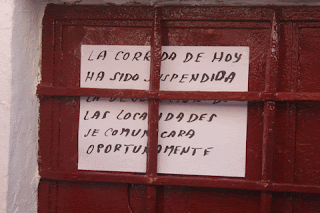 LA CORRIDA DE HOY
HA SIDO SUSPENDIDA
LA DEVOLUCION DE
LAS LOCALIDADES
SE COMUNICARA
OPORTUNAMENTE